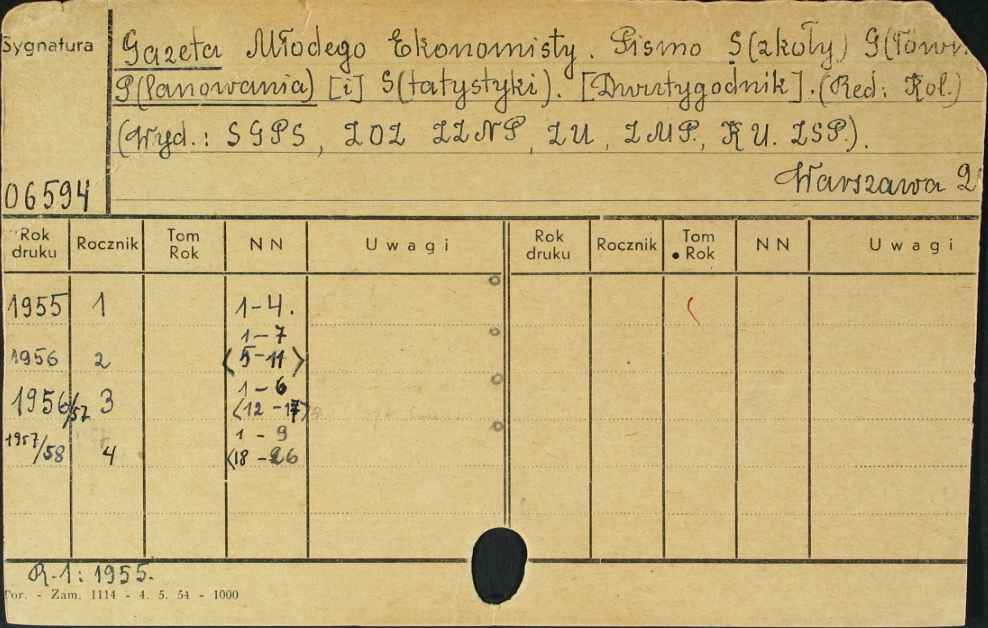 Sygnatura
Gazeta Młodego Ekonomisty. Pismo S(zkoły) G(łówn
P(lanowania) [i] S(tatystyki). [Dwutygodnik]. (Red: Kol.)
(Wyd.: SGPS, ZOZ ZZNP, ZU, ZMP., KU. ZSP.).
06594
Warszawa 2
Rok druku Rocznik Tom Rok NN Uwagi Rok druku Rocznik Tom Rok NN Uwagi
1955 1 1-4.
1-7
1956 2 <5-11>
1-6
1956/57 3 <12-17>
1-9
1957/58 4 <18-26
R-1: 1955.
For. - Zam. 1114 - 4. 5. 54 - 1000